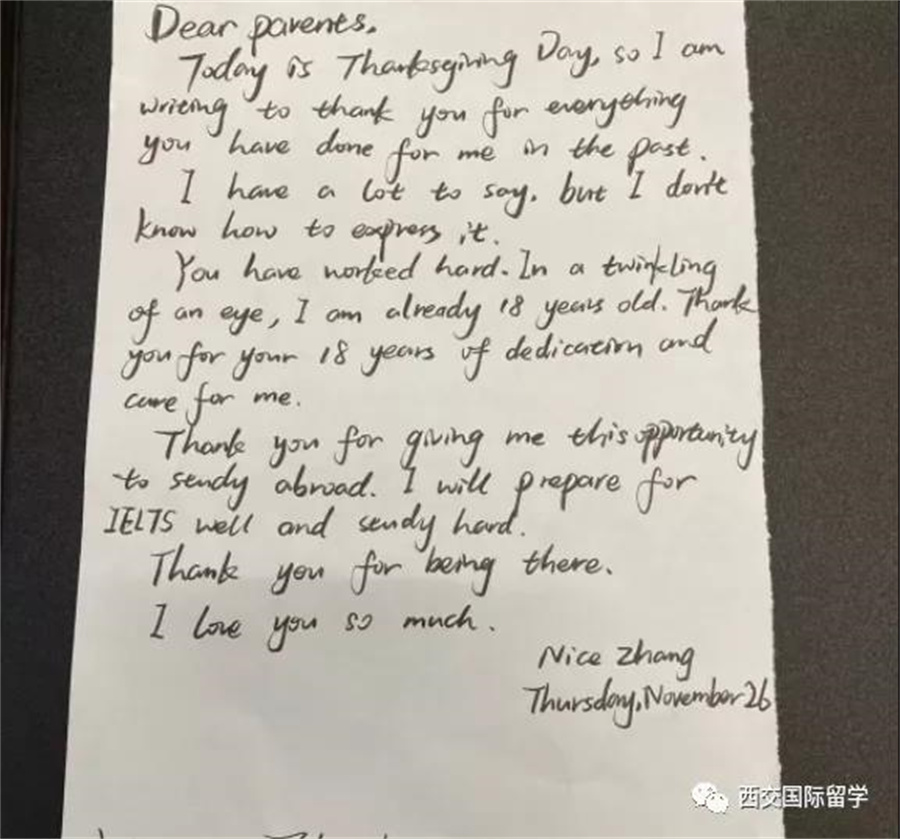 Dear parents.
Today is Thanksgiving Day, so I am
writing to thank you for everything
you have done for me in the past.
I have a lot to say, but I don't
know how to express it.
You have worked hard. In a twinkling
of an eye, I am already 18 years old. Thank
you for your 18 years of dedication and
care for me.
Thank you for giving me this opportunity
to study abroad. I will prepare for
IELTS well and study hard.
Thank you for being there.
I love you so much.
Nice Zhang
Thursday, November 26
西交国际留学